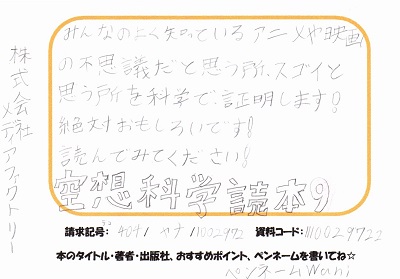 みんなのよく知っているアニメや映画
の不思議だと思う所、スゴイと
思う所を科学で証明します!
絶対おもしろいです!
読んでみてください!
空想科学読本9
株式会社
メディアファクトリー
請求記号: 404/ ヤナ/1002972 資料コード:1110029722
本のタイトル・著者・出版社、おすすめポイント、ペンネームを書いてね☆
ペンネームwani